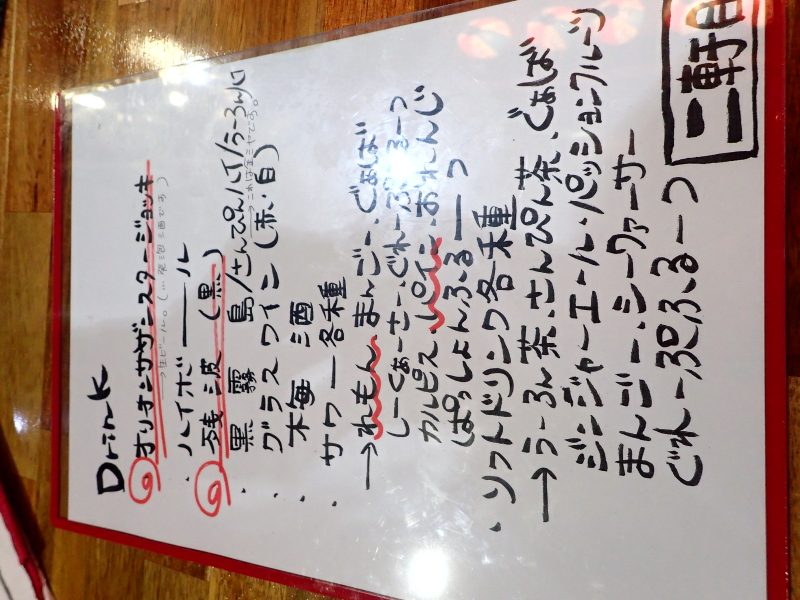 Drink
オリオンサザンスタージョッキ
→生ビール。(※発泡酒です)
・ハイボール
残波(黒)
黒霧島/さんぴんハイ/うーろんハイ
→これは金ミヤです。
・グラスワイン(赤・白)
・梅酒
・サワー各種
→れもん、まんごー、ぐぁば
しーくぁーさー、ぐれーぷふるーつ
カルピス、パイン、おれんじ
ぱっしょんふるーつ
・ソフトドリンク各種
→うーろん茶、さんぴん茶、ぐぁば
ジンジャーエール・パッションフルーツ
まんごー、シークァーサー
ぐれーぷふるーつ
二軒目